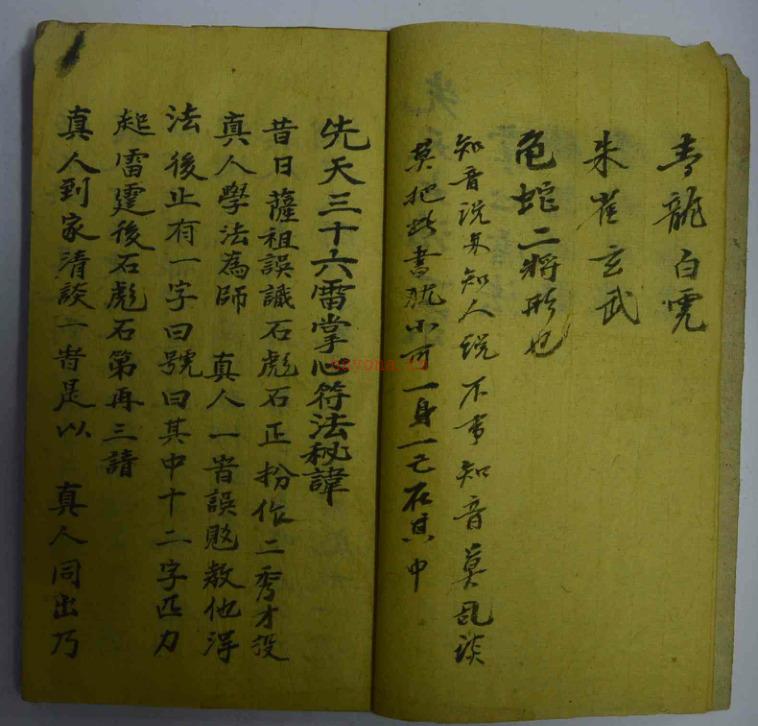 青龍白虎
朱雀玄武
龟蛇二將形也
知音说与知人说 不常知音莫乱谈
莫把此書視小可一身一己在其中
先天三十六雷掌心符法秘諱
昔日薩祖誤識石彪石正扮作二秀才投
真人學法為師 真人一時誤敎他浔
法後止有一字曰號曰其中十二字匹力
起雷霆後石彪石第再三請
真人到家清談一昔是以 真人同出乃